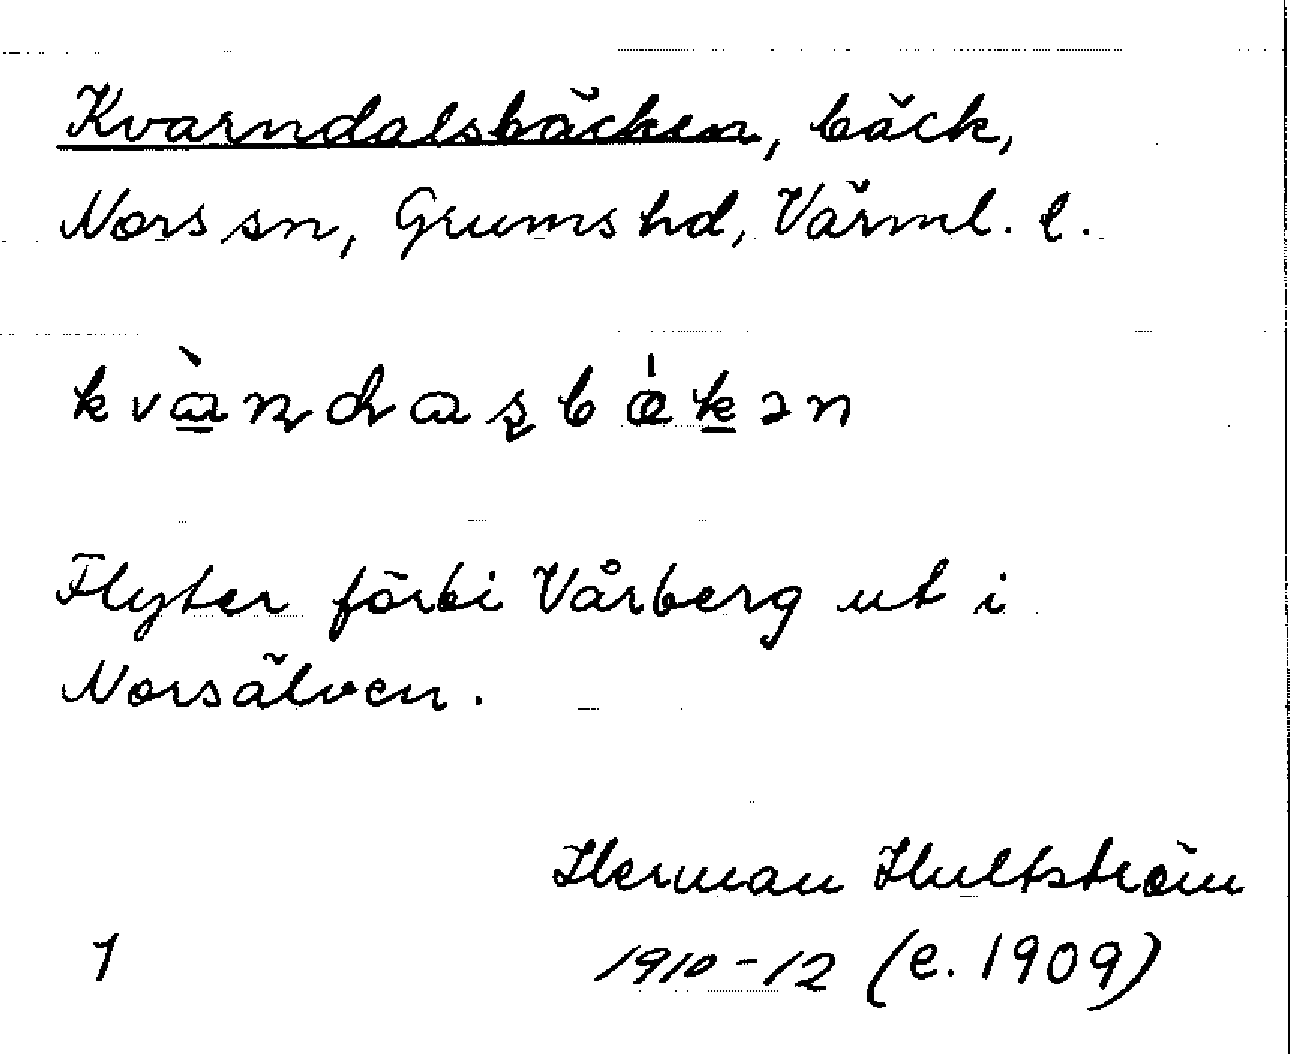 Kvarndalsbäcken, bäck,
Nors sn, Grums hd, Värml. l.
kvàɳɖaʂbǿkən
Flyter förbi Vårberg ut i
Norsälven.
Herman Hultström
1 1910-12 (e. 1909)